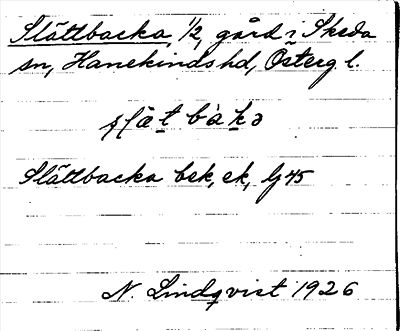 Slättbacka, 1/2, gård i Skeda
sn, Hanekinds hd, Österg l.
Slättbacka bsk, ek, lg 45
N. Lindqvist 1926